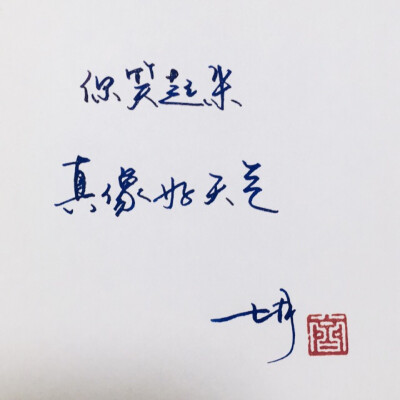 你笑起来
真像好天气